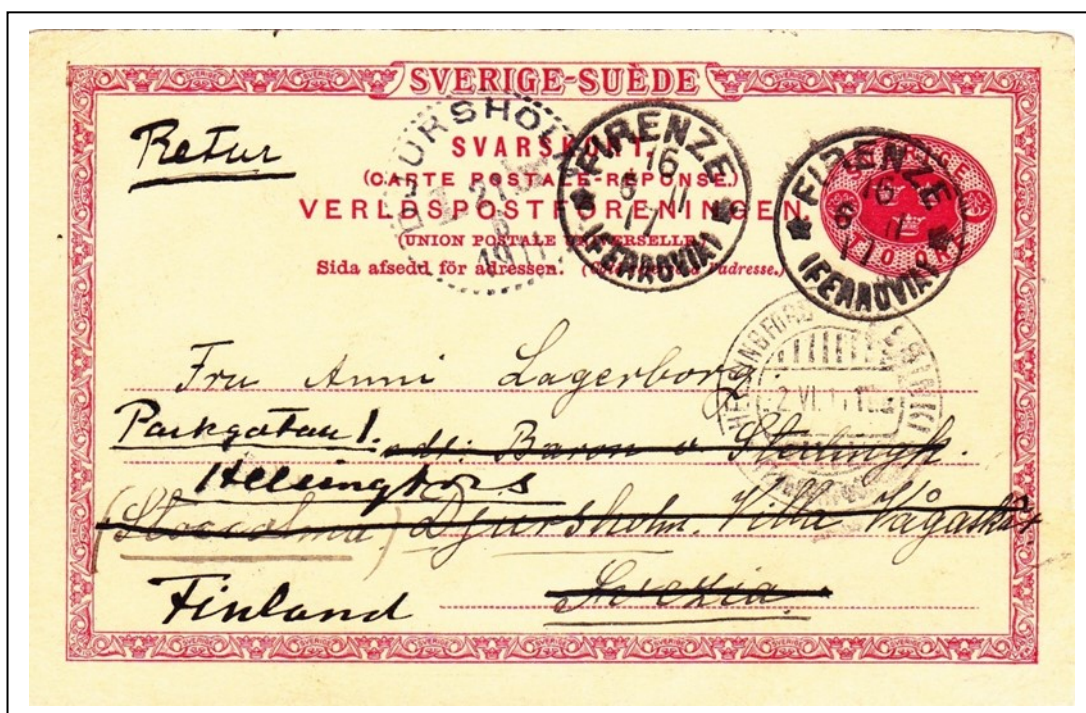 SVERIGE-SUÈDE
Retur
SVARSKORT.
(CARTE POSTALE-RÉPONSE.)
VERLDSPOSTFÖRENINGEN.
(UNION POSTALE UNIVERSELLE.)
Sida afsedd för adressen. (Côté réservé à l'adresse.)
DJURSHOLM
1911
FIRENZE
16
6 11
11
(FERROVIA)
FIRENZE
16
6 11
11
(FERROVIA)
SVERIGE
TIO ÖRE
HELSINGFORS
HELSINKI
VI
Fru Anni Lagerborg.
Parkgatan 1. adr. Baron v. Stedingk.
Helsingfors
(Stoccolma) Djursholm. Villa
Finland Svezia.